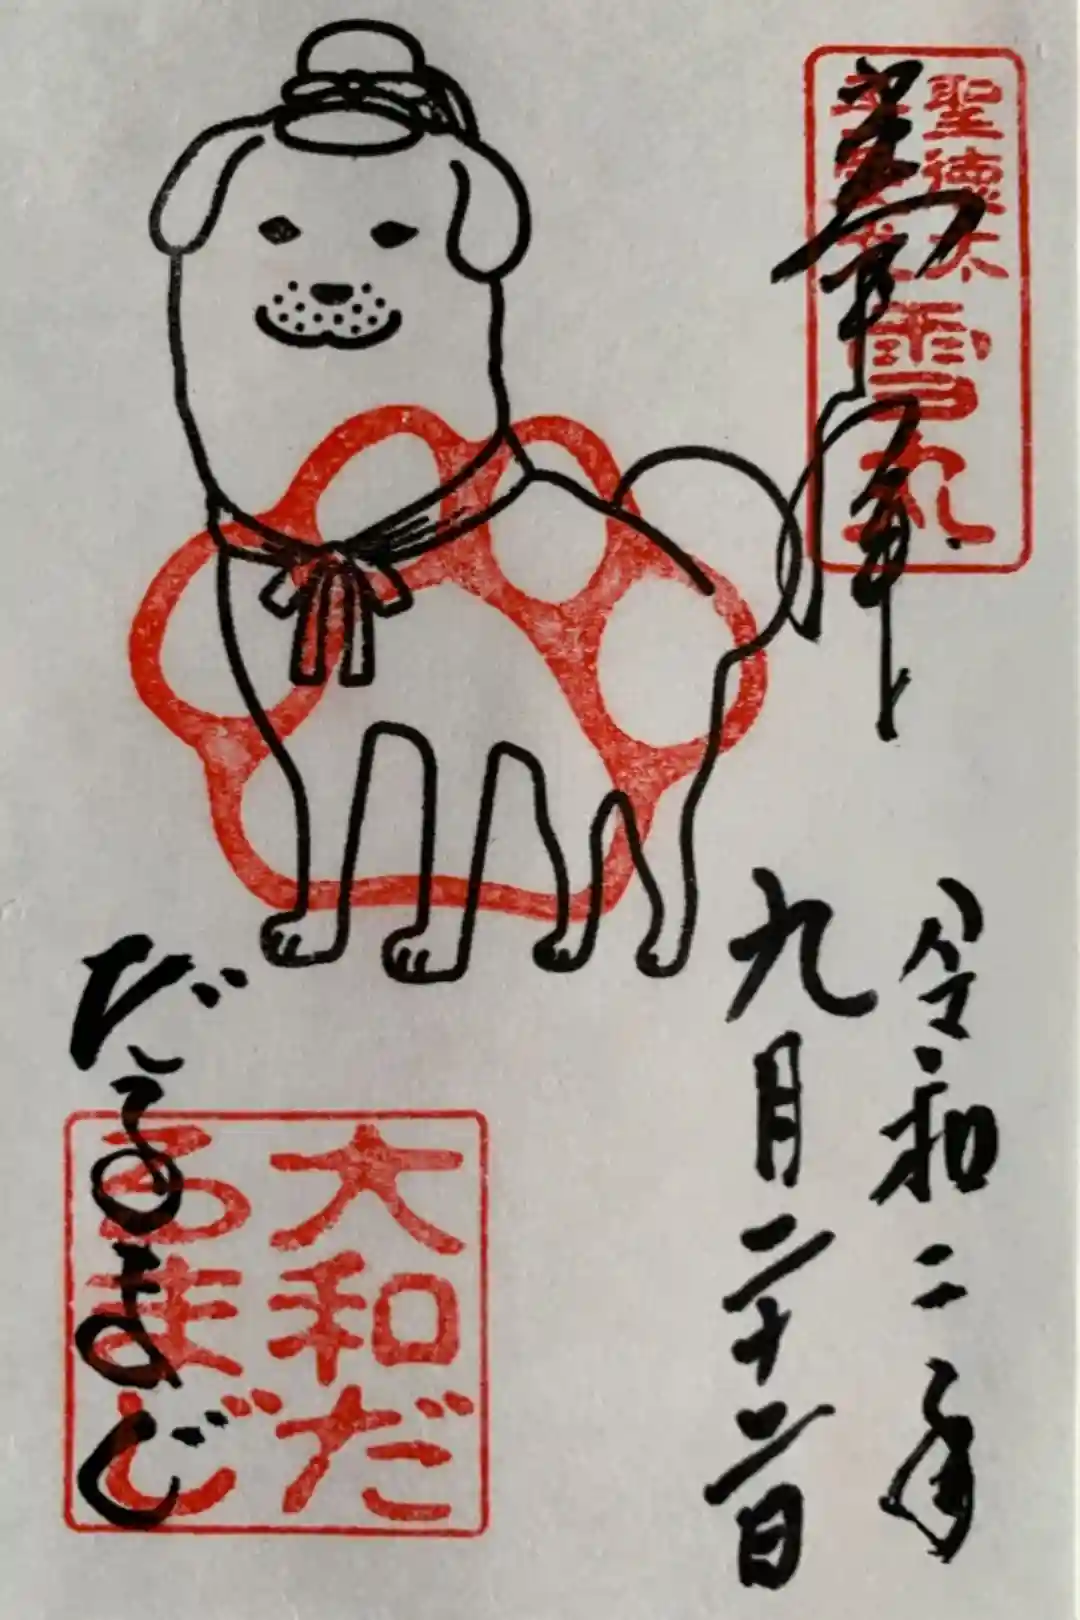 聖徳太
雪丸
令和二年
九月二十二日
大和だ
るまじ
だるまじ